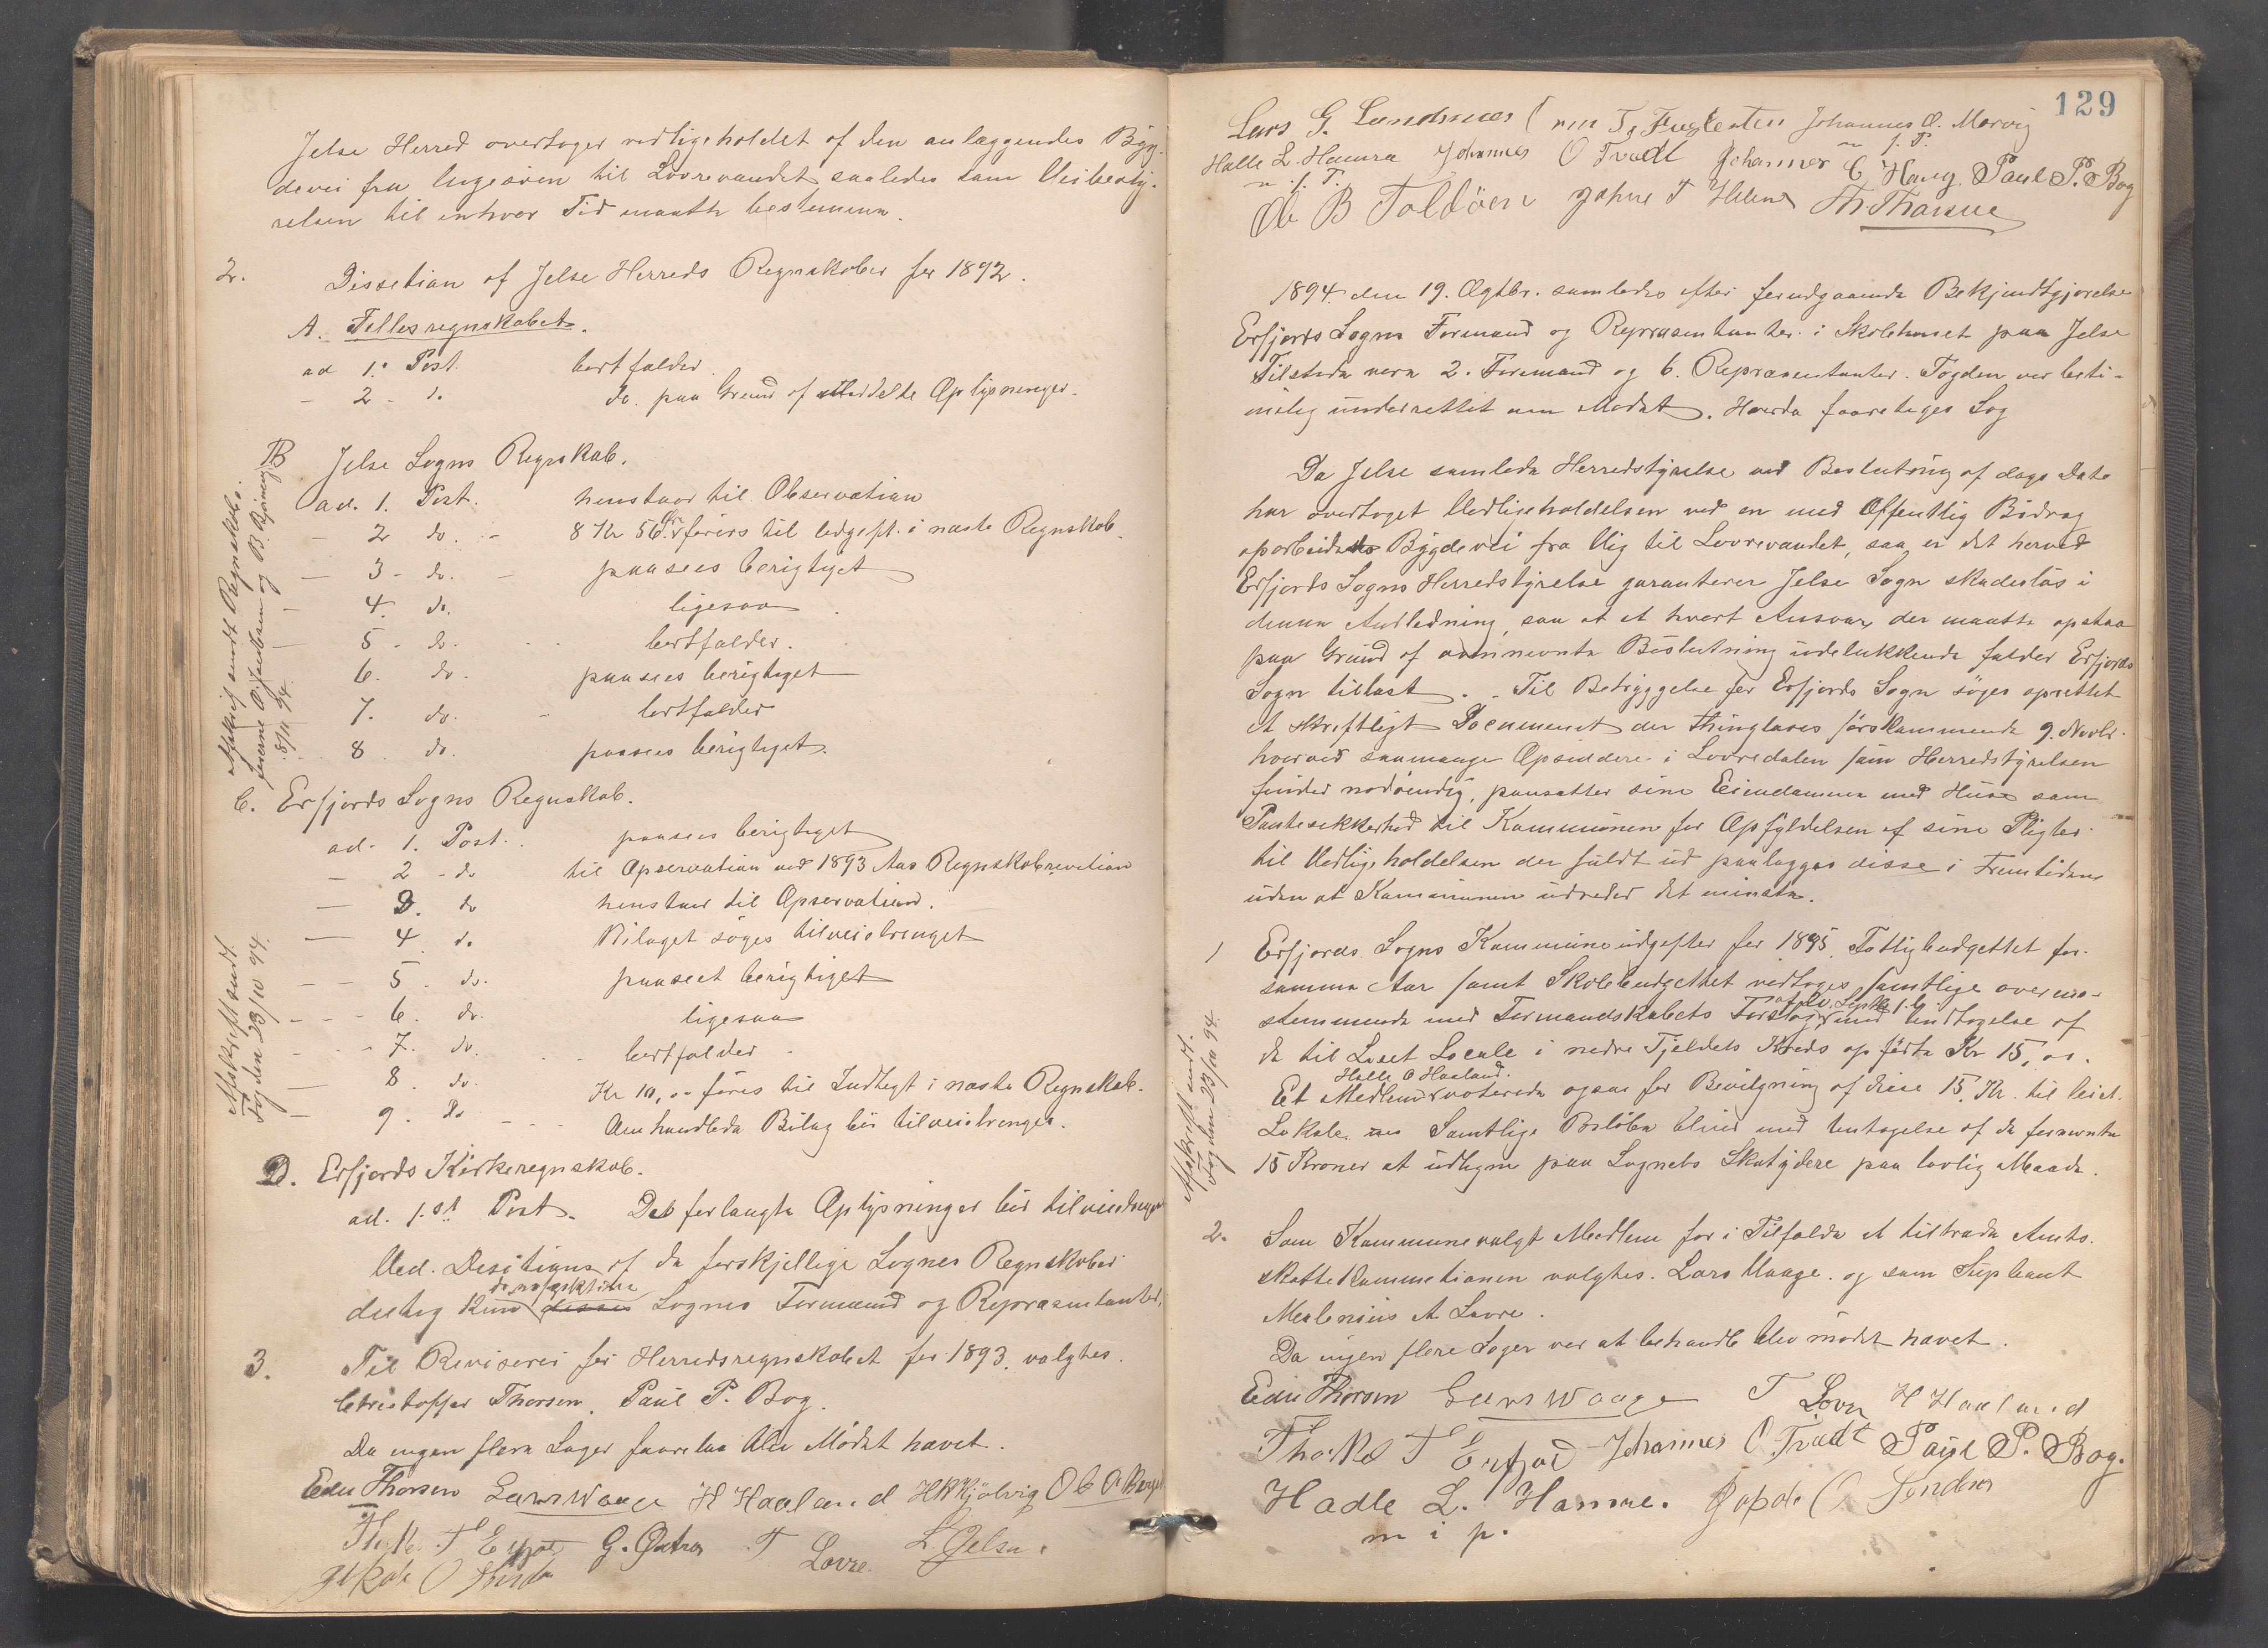 Jelse Herred overtager vedligeholdet af den anlæggendes Byg-
devei fra Angesøen til Lovrevandet saaledes som Veibesty-
relsen til enhver Tid maatte bestemme.
2. Dissetian af Jelse Herreds Regnskaber for 1892.
A. Fællesregnskabet.
ad 1. Post. bortfalder
- 2 - do. do. paa Grund af meddelte Oplysninger.
B Jelse Sogns Regnskab.
ad. 1. Post. henstaar til Observation
- 2 do. - 8 Kr 56 Ør føres til Udgift i næste Regnskab.
- 3 - do. - paasees berigtiget
- 4 do. ligesaa
- 5 - do. bortfalder.
6. do. paasees berigtiget
7. do. - bortfalder
8. do. paasees berigtiget.
Afskrift sendt Regnskabs-
førerne O. Jacobsen og B. Bjørnevig
8/11 94.
C. Erfjords Sogns Regnskab.
ad. 1. Post. paasees berigtiget
- 2 - do til Opservation ved 1893 Aars Regnskabsrevition
- 3. do henstaar til Opservation.
- 4 do Bilaget søges tilveiebringet
- 5. do. paaseet berigtiget
- 6. do. ligesaa
- 7. do. bortfalder
- 8. do. Kr 10,00 føres til Indtægt i næste Regnskab.
- 9. do Omhandlede Bilag bør tilveiebringes.
Afskrift sendt
Fogden 23/10 94.
D. Erfjords Kirkeregnskab.
ad. 1.st Post. Det forlangte Oplysninger bør tilveiebringes
Ved Desitions af de forskjellige Sognes Regnskaber
deltog kun de respektive disses Sognes Formænd og Repræsentanter.
3. Til Revisorer for Herredsregnskabet for 1893 valgtes.
Christoffer Thorsen, Paul P. Bog.
Da ingen flere Sager foorelaa blev Mødet hævet.
Edv Thorsen Lars Waage H Haaland H K Kjølvig O C A Berge
Thorkel T Erfjord G. Østrem T Lovre. L Jelsa.
Jakob O Hinda
129
Lars G. Sundmes T. Fuglesteen Johannes O. Marvig
Halle L. Hamra Johannes O Tvedt Johannes C Haug. Paul P. Bog
m. f. P. m. f. P.
Ole B Foldøen Johne T Helmes Th. Thorsne
1894 den 19. Ogtbr. samledes efter forudgaaende Bekjendtgjørelse
Erfjords Sogns Formænd og Repræsentanter i Skolehuset paa Jelse
Tilstede vare 2. Formænd og 6. Repræsentanter. Fogden var beti-
melig underrettet om Mødet. Hvorda faaretages Sag
Da Jelse samlede Herredstyrelse ved Beslutning af dags Dato
har overtaget Vedligeholdelsen ved en med Offentlig Bidrag
oparbeidende Bygdevei fra Vig til Lovrevandet, saa er det herved
Erfjords Sogns Herredstyrelse garanterer Jelse Sogn skadesløs i
denne Anledning, saa at et hvert Ansvar, der maatte opstaa
paa Grund af omnævnte Beslutning udelukkende falder Erfjords
Sogn tillast. - Til Betryggelse for Erfjords Sogn søges oprettet
et skriftligt Document der thinglæses førstkommende 9. Novbr.
hvorved saamange Opsiddere i Lovredalen som Herredstyrelsen
finder nødvendig, pansætter sine Eiendomme med Huse som
Pantesikkerhed til Kommunen for Opfyldelsen af sine Pligter
til Vedligeholdelsen der fuldt ud paalægges disse i Fremtiden
uden at Kommunen udreder det minste.
1 Erfjords Sogns Kommuneudgifter for 1895, Fattigbudgettet for
samme Aar samt Skolebudgettet vedtages samtlige overens-
stemmende med Formandskabets Forslag med Undtagelse af
de til Leiet Locale i nedre Tjeldets Kreds opførte Kr 15,00.
Et Medlem Halle O Haaland voterede ogsaa for Bevilgning af disse 15 Kr. til leiet
Lokale. Samtlige Beløbe bliver med Untagelse af de fornevnte
15 Kroner at udligne paa Sognets Skatydere paa lovlig Maade.
Afskrift sendt.
Fogden 23/10 94.
2. Som Kommunevalgt Medlem for i Tilfælde at tiltræde Amts-
skatteKommetionen valgtes. Lars Waage. og som Supleant
Meltenius A Lovre.
Da ingen flere Sager var at behandle blev mødet hævet.
Edv Thorsen Lars Waage T Lovre H Haaland
Thorkel T Erfjord Johannes O Tvedt Paul P. Bog.
Hadle L. Hamre. Jakob O Hindra
m i p.